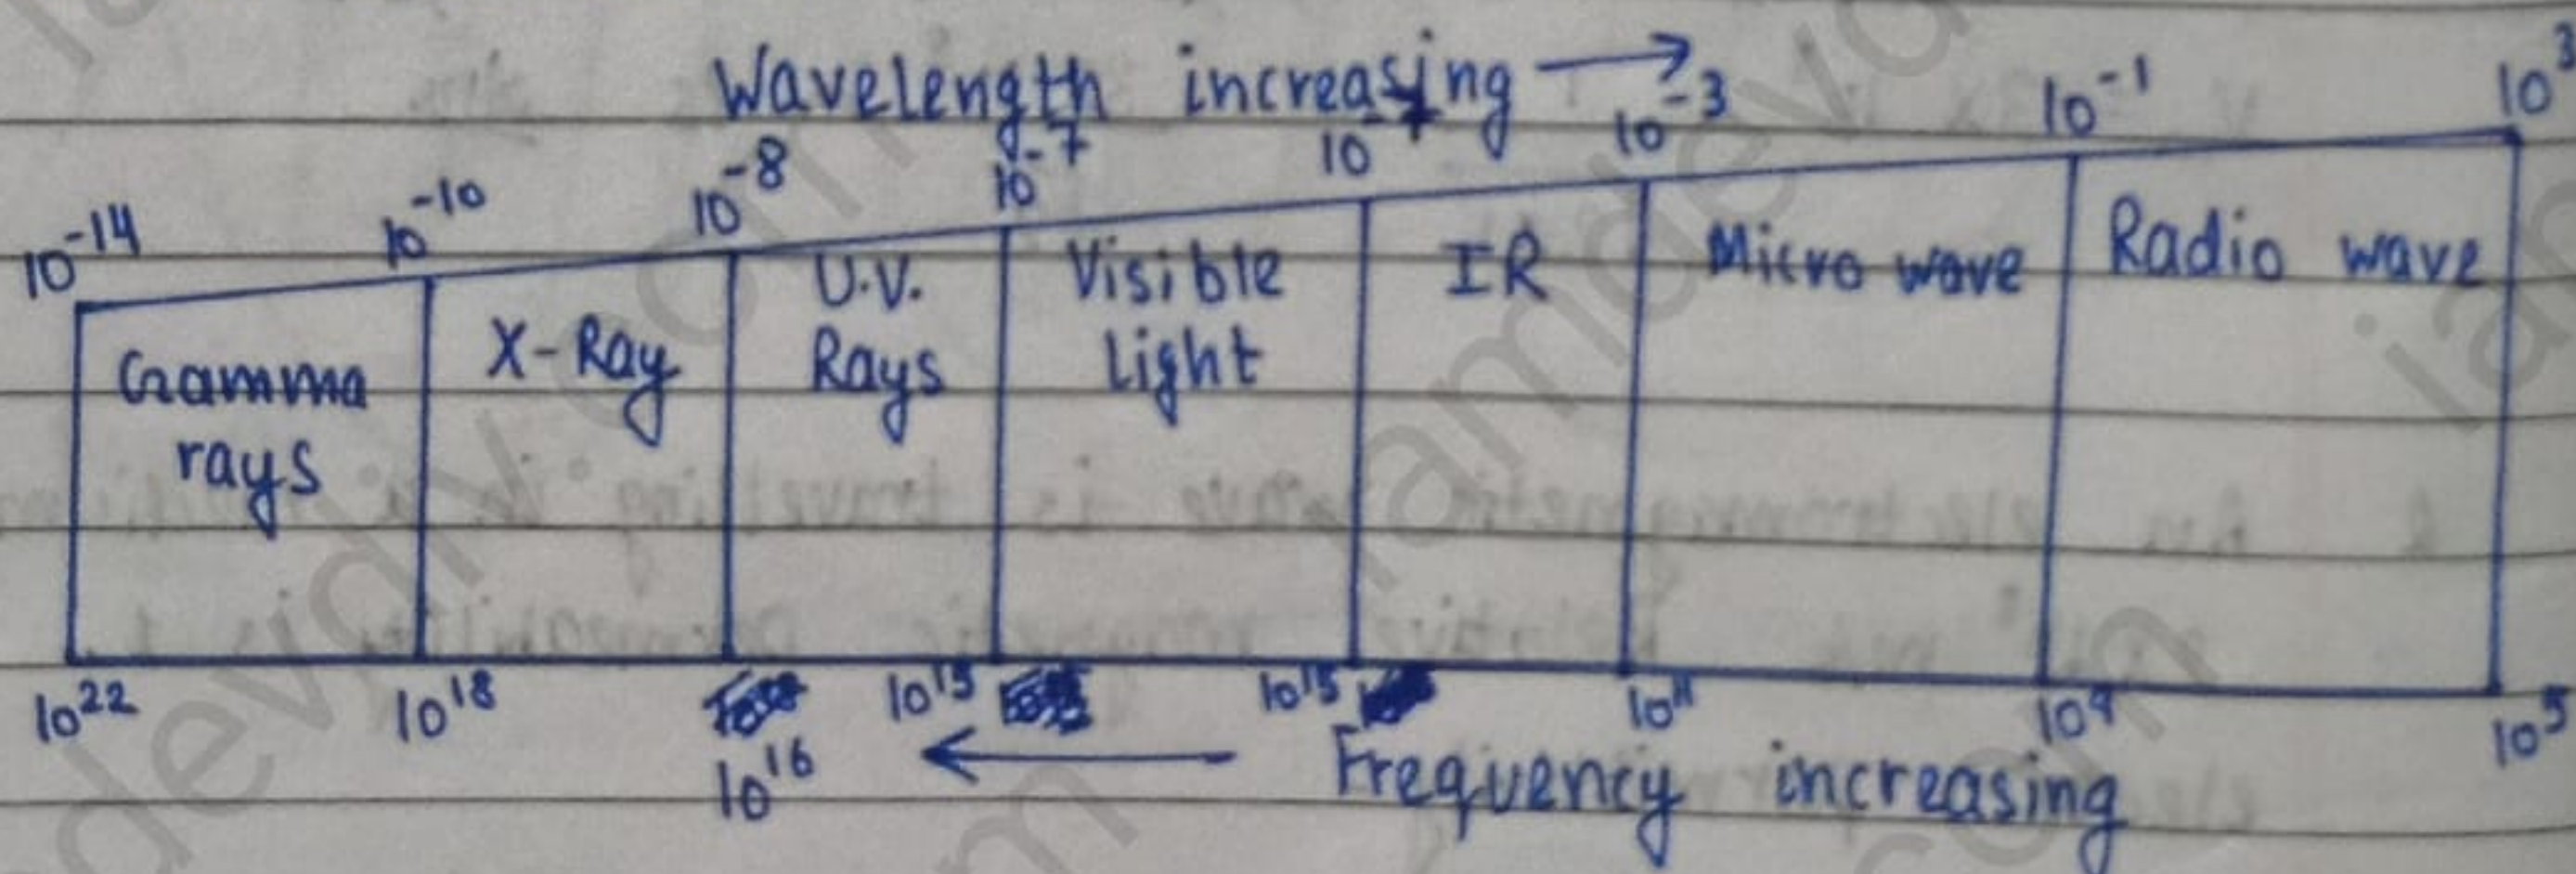 Wavelength increasing →
10⁻¹⁴ 10⁻¹⁰ 10⁻⁸ 10⁻⁷ 10 10⁻³ 10⁻¹ 10³
Gamma rays
X-Ray
U.V. Rays
Visible Light
IR
Micro wave
Radio wave
10²² 10¹⁸ 10¹⁵ 10¹⁵ 10¹¹ 10⁹ 10⁵
10¹⁶
← Frequency increasing